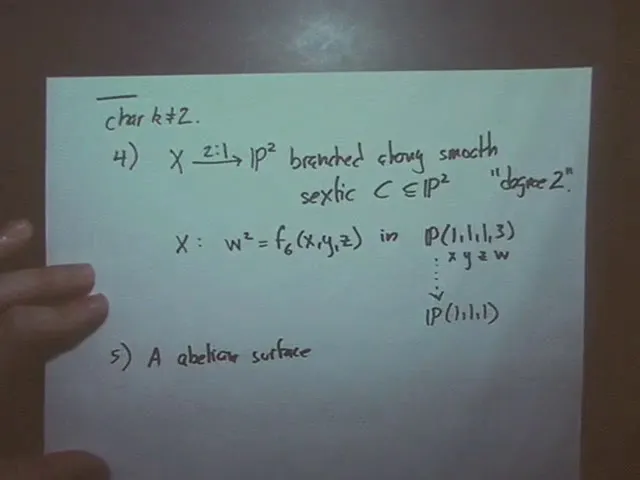 char k≠2.
4) X —2:1→ ℙ² branched along smooth
sextic C ⊆ ℙ² "degree 2".
X: w² = f₆(x,y,z) in ℙ(1,1,1,3)
x y z w
ℙ(1,1,1)
5) A abelian surface